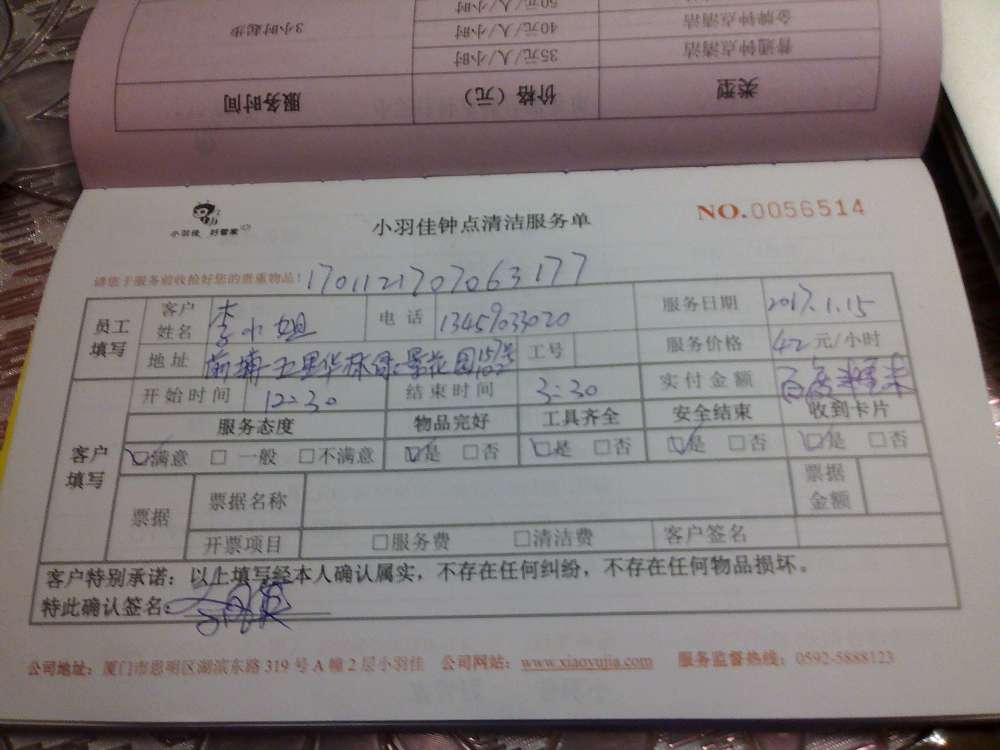 类型 价格（元） 服务时间
普通钟点清洁 35元/人/小时
金牌钟点清洁 40元/人/小时 3小时起步
50元/人/小时
小羽佳 好管家
小羽佳钟点清洁服务单
NO.0056514
请您于服务前收捡好您的贵重物品！170112170706 3177
员工填写 客户姓名 李小姐 电话 13459033020 服务日期 2017.1.15
地址 前埔五里华林绿景花园157号102 工号 服务价格 42元/小时
客户填写 开始时间 12:30 结束时间 3:30 实付金额 百度糯米
服务态度 物品完好 工具齐全 安全结束 收到卡片
☑满意 □一般 □不满意 ☑是 □否 ☑是 □否 ☑是 □否 ☑是 □否
票据 票据名称 票据金额
开票项目 □服务费 □清洁费 客户签名
客户特别承诺：以上填写经本人确认属实，不存在任何纠纷，不存在任何物品损坏。
特此确认签名：
公司地址：厦门市思明区湖滨东路319号A幢2层小羽佳 公司网站：www.xiaoyujia.com 服务监督热线：0592-5888123